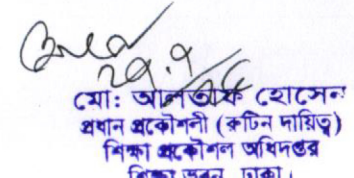 মো: আলতাফ হোসেন
প্রধান প্রকৌশলী (রুটিন দায়িত্ব)
শিক্ষা প্রকৌশল অধিদপ্তর
শিক্ষা ভবন, ঢাকা।